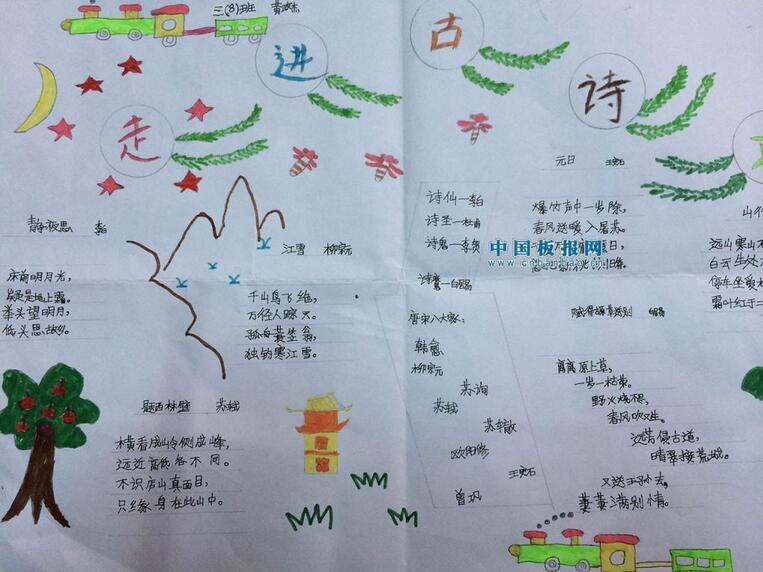 三(8)班
走进古诗
静夜思 李白
床前明月光，
疑是地上霜。
举头望明月，
低头思故乡。
江雪 柳宗元
千山鸟飞绝，
万径人踪灭。
孤舟蓑笠翁，
独钓寒江雪。
题西林壁 苏轼
横看成岭侧成峰，
远近高低各不同。
不识庐山真面目，
只缘身在此山中。
诗仙—李白
诗圣—杜甫
诗鬼—李贺
诗魔—白居易
唐宋八大家：
韩愈
柳宗元
苏洵
苏轼
苏辙
欧阳修
王安石
曾巩
元日 王安石
爆竹声中一岁除，
春风送暖入屠苏。
中国板报网
赋得古原草送别
离离原上草，
一岁一枯荣。
野火烧不尽，
春风吹又生。
远芳侵古道，
晴翠接荒城。
又送王孙去，
萋萋满别情。
山行
远山寒山
白云生处
停车坐爱
霜叶红于二